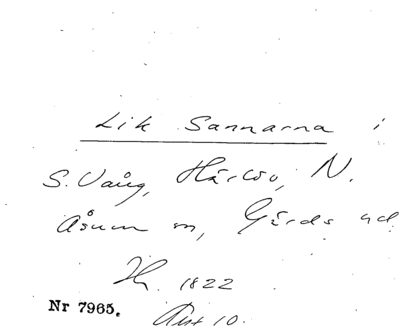 Lik Sannarna i
S. Vång, Härlöv, N.
Åsum m, Gärds hd
Th. 1822
Nr 7965. Avt 10.